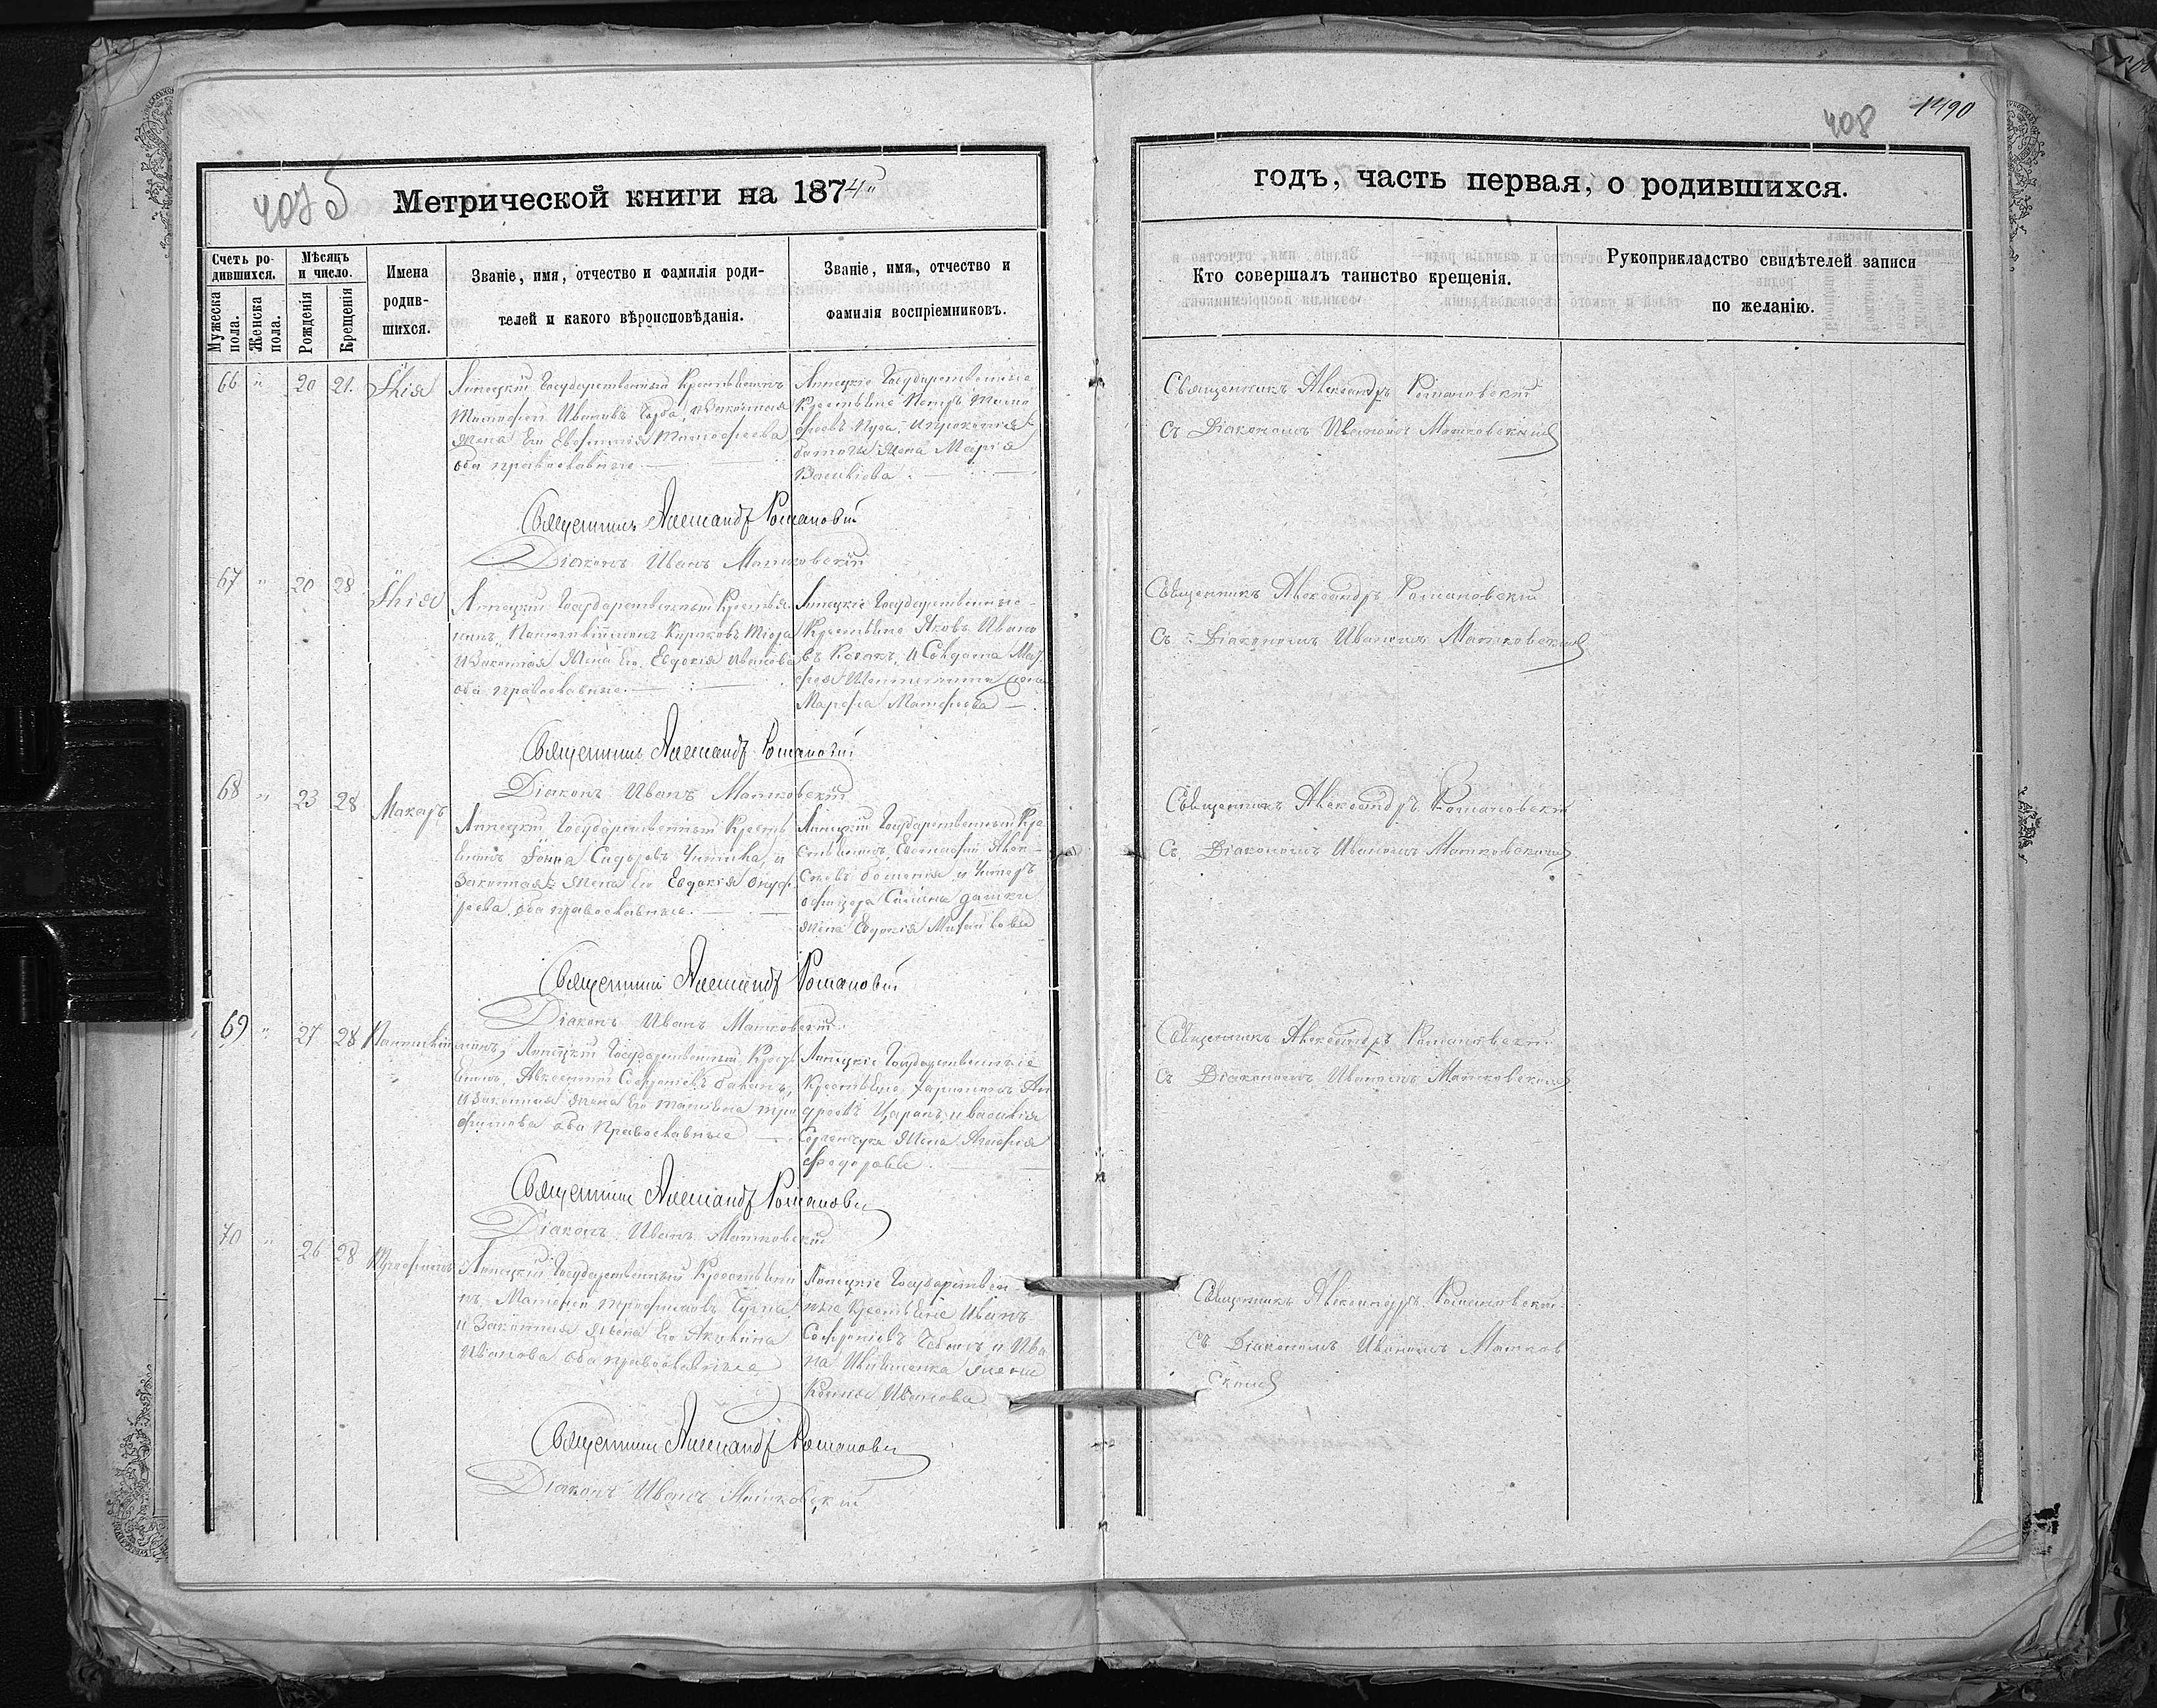 1490
408
Метрической книги на 1874й
годъ, часть первая, о родившихся.
Счетъ родившихся.
Мужеска пола.
Женска пола.
Мѣсяцъ и число.
Рожденія
Крещенія
Имена родившихся.
Званіе, имя, отчество и фамилія родителей и какого вѣроисповѣданія.
Званіе, имя, отчество и фамилія воспріемниковъ.
Кто совершалъ таинство крещенія.
Рукоприкладство свидѣтелей записи по желанію.
66 " 20 21.
Липецкій Государственный Крестьянинъ
Тимофей Ивановъ и законная
жена Его Евфимія Тимофеева
оба православные.
Липецкіе Государственные
Крестьяне Петръ
жена Марія
Василіева.
Священникъ Александръ Романовскій
съ Діакономъ Иваномъ Матковскимъ
Священникъ Александръ Романовскій
Діаконъ Иванъ Матковскій
67 " 20 28
Липецкій Государственный Крестья-
нинъ Пантилиймонъ Киріковъ
и Законная Жена Его Евдокія Иванова
оба православные.
Липецкіе Государственные
Крестьяне Яковъ Ивано
въ и Солдата
Марфа Матфеева
Священникъ Александръ Романовскій
Съ Діакономъ Иваномъ Матковскимъ
Священникъ Александръ Романовскій
Діаконъ Иванъ Матковскій
68 " 23 28 Макаръ
Липецкій Государственный Кресть
янинъ Сидоровъ и
Законная жена Его Евдокія Онуф
реева, оба православные.
Липецкій Государственный Кре
стьянинъ и Унтеръ
офицера
жена Евдокія Михайлова
Священникъ Александръ Романовскій
Съ Діакономъ Иваномъ Матковскимъ
Священникъ Александръ Романовскій
Діаконъ Иванъ Матковскій
69 " 27 28 Пантилиймонъ
Липецкій Государственный Кресть
янинъ, Авксентій Софроніевъ
и Законная жена Его Татіяна Тро
фимова оба Православные
Липецкіе Государственные
Крестьяне, Харитонъ Ан
дреевъ Царанъ и Василія
жена Агафія
Федорова.
Священникъ Александръ Романовскій
Съ Діакономъ Иваномъ Матковскимъ
Священникъ Александръ Романовскій
Діаконъ Иванъ Матковскій
70 " 26 28 Трофимъ
Липецкій Государственный Крестьяни
нъ Матфей Трофимовъ
и Законная жена Его Акилина
Иванова оба православные
Липецкіе Государствен
ные Крестьяне Иванъ
Софроніевъ и Ива
на жена
Иванова
Священникъ Александръ Романовскій
Съ Діакономъ Иваномъ Матков
скимъ
Священникъ Александръ Романовскій
Діаконъ Иванъ Матковскій